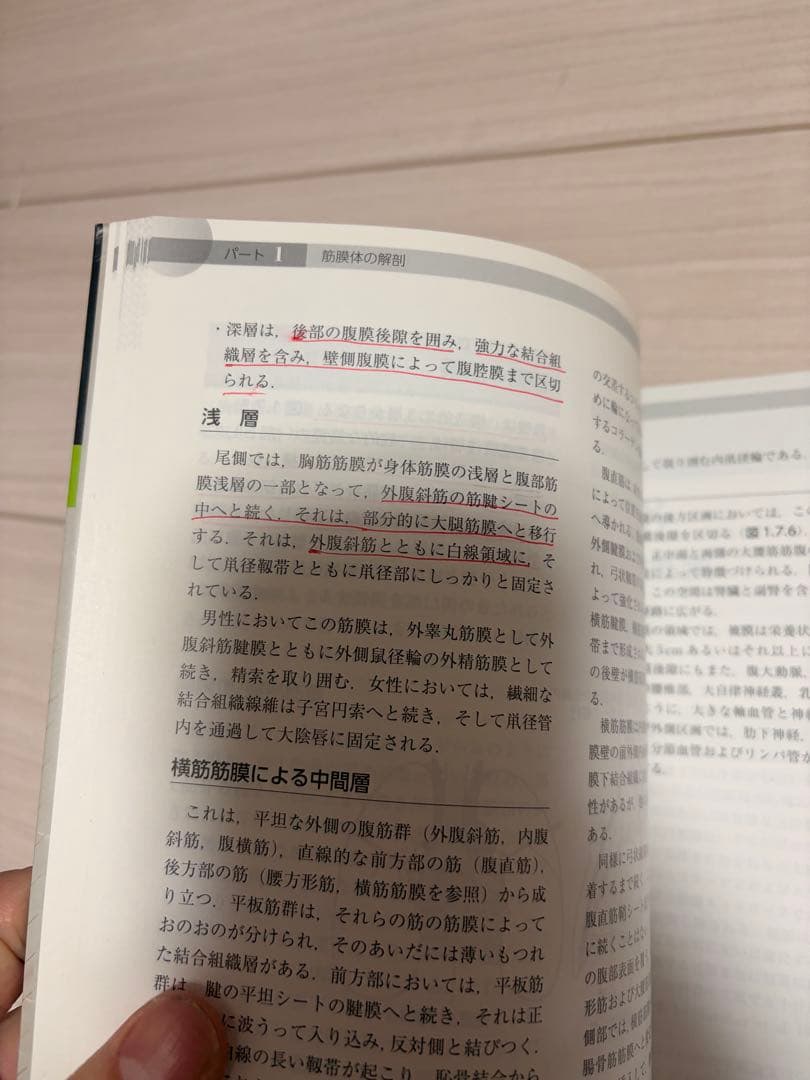 パート 1 筋膜体の解剖
・深層は，後部の腹膜後隙を囲み，強力な結合組
織層を含み，壁側腹膜によって腹腔膜まで区切
られる．
浅 層
尾側では，胸筋筋膜が身体筋膜の浅層と腹部筋
膜浅層の一部となって，外腹斜筋の筋腱シートの
中へと続く．それは，部分的に大腿筋膜へと移行
する．それは，外腹斜筋とともに白線領域に，そ
して鼡径靱帯とともに鼡径部にしっかりと固定さ
れている．
男性においてこの筋膜は，外睾丸筋膜として外
腹斜筋腱膜とともに外側鼠径輪の外精筋膜として
続き，精索を取り囲む．女性においては，繊細な
結合組織線維は子宮円索へと続き，そして鼡径管
内を通過して大陰唇に固定される．
横筋筋膜による中間層
これは，平坦な外側の腹筋群（外腹斜筋，内腹
斜筋，腹横筋），直線的な前方部の筋（腹直筋），
後方部の筋（腰方形筋，横筋筋膜を参照）から成
り立つ．平板筋群は，それらの筋の筋膜によって
おのおのが分けられ，そのあいだには薄いもつれ
た結合組織層がある．前方部においては，平板筋
群は，腱の平坦シートの腱膜へと続き，それは正
に波うって入り込み，反対側と結びつく．
白線の長い靱帯が起こり，恥骨結合から
の交差する
めに輪になっ
するコラーゲ
る．
腹直筋は
によって
へ導かれる
外側腱膜およ
れ，弓状
よって強化さ
横筋腱膜，
帯まで形成さ
の後壁が
る．
横筋筋膜は
膜壁の前外
膜下結合組織
性があるが，
ある．
同様に弓状
着するまで続く
腹直筋鞘シート
に続くことはない
の腹部表面を覆う
形筋および大腰
側部では，横筋
腸骨筋筋膜へと
て取り囲む内鼡径輪である．
の後方区画においては，こ
後隙を区切る（図 1.7.6）．
正中面と両側の大腰筋筋膜
によって特徴づけられる．
この空間は腎臓と副腎を含
路に広がる．
の領域では，被膜は栄養状
5cm あるいはそれ以上に
後隙にもまた，腹大動脈，
腰椎部，大自律神経叢，
うに，大きな軸血管と神経
外側区画では，肋下神経，
分節血管およびリンパ管が
る．